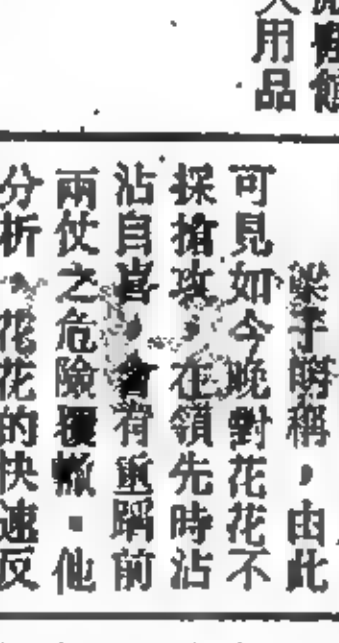 用品
梁子鏘稱，由此
可見如今晚對花花不
採搶攻，在領先時沾
沾自喜，會有重蹈前
兩仗之危險覆轍。他
分析，花花的快速反